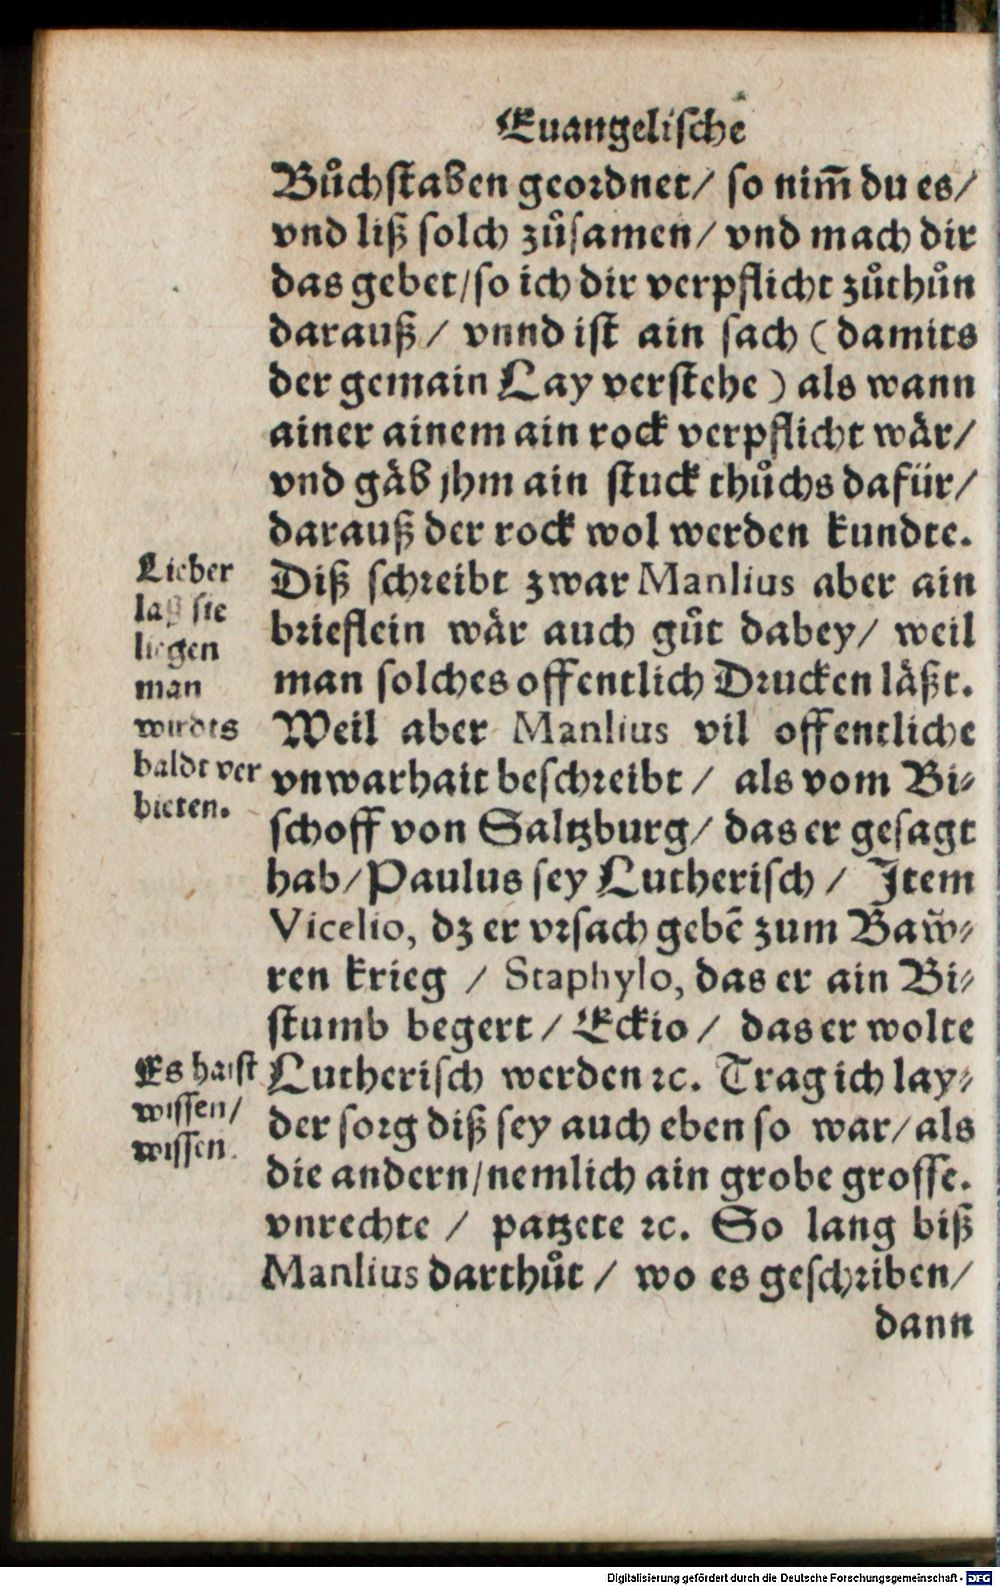 Euangelische
Bůchstaben geordnet/ so nim̃ du es/
vnd liß solch zůsamen/ vnd mach dir
das gebet/so ich dir verpflicht zůthůn
darauß/ vnnd ist ain sach (damits
der gemain Lay verstehe) als wann
ainer ainem ain rock verpflicht wår/
vnd gåb jhm ain stuck thůchs dafür/
darauß der rock wol werden kundte.
Diß schreibt zwar Manlius aber ain
brieflein wår auch gůt dabey/ weil
man solches offentlich Drucken låßt.
Weil aber Manlius vil offentliche
vnwarhait beschreibt/ als vom Bi-
schoff von Saltzburg/ das er gesagt
hab/Paulus sey Lutherisch/ Item
Vicelio, dz er vrsach gebẽ zum Baw̃-
ren krieg / Staphylo, das er ain Bi-
stumb begert/ Eckio/ das er wolte
Lutherisch werden ꝛc. Trag ich lay-
der sorg diß sey auch eben so war/als
die andern/nemlich ain grobe grosse.
vnrechte / patzete ꝛc. So lang biß
Manlius darthůt / wo es geschriben/
dann
Lieber
laß sie
ligen
man
wirdts
baldt ver
bieten.
Es haist
wissen/
wissen.
Digitalisierung gefördert durch die Deutsche Forschungsgemeinschaft - DFG